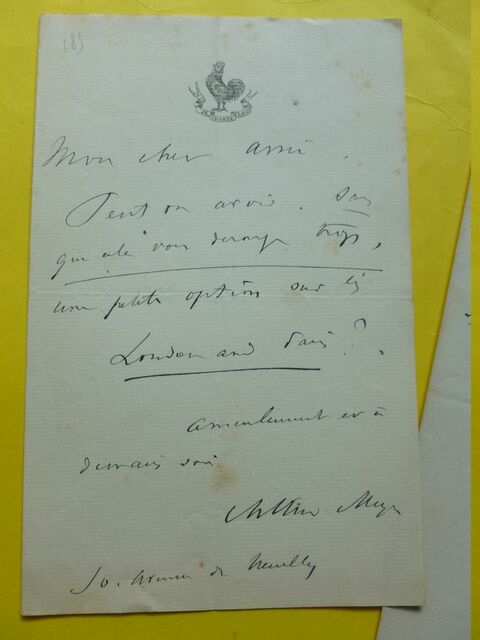 185
JE CHANTE CLAIR
Mon cher ami,
Peut on avoir, sans
que cela vous dérange trop,
une petite option sur les
London and Paris ?
Amicalement et à
demain soir
Arthur Meyer
30. Avenue de Neuilly